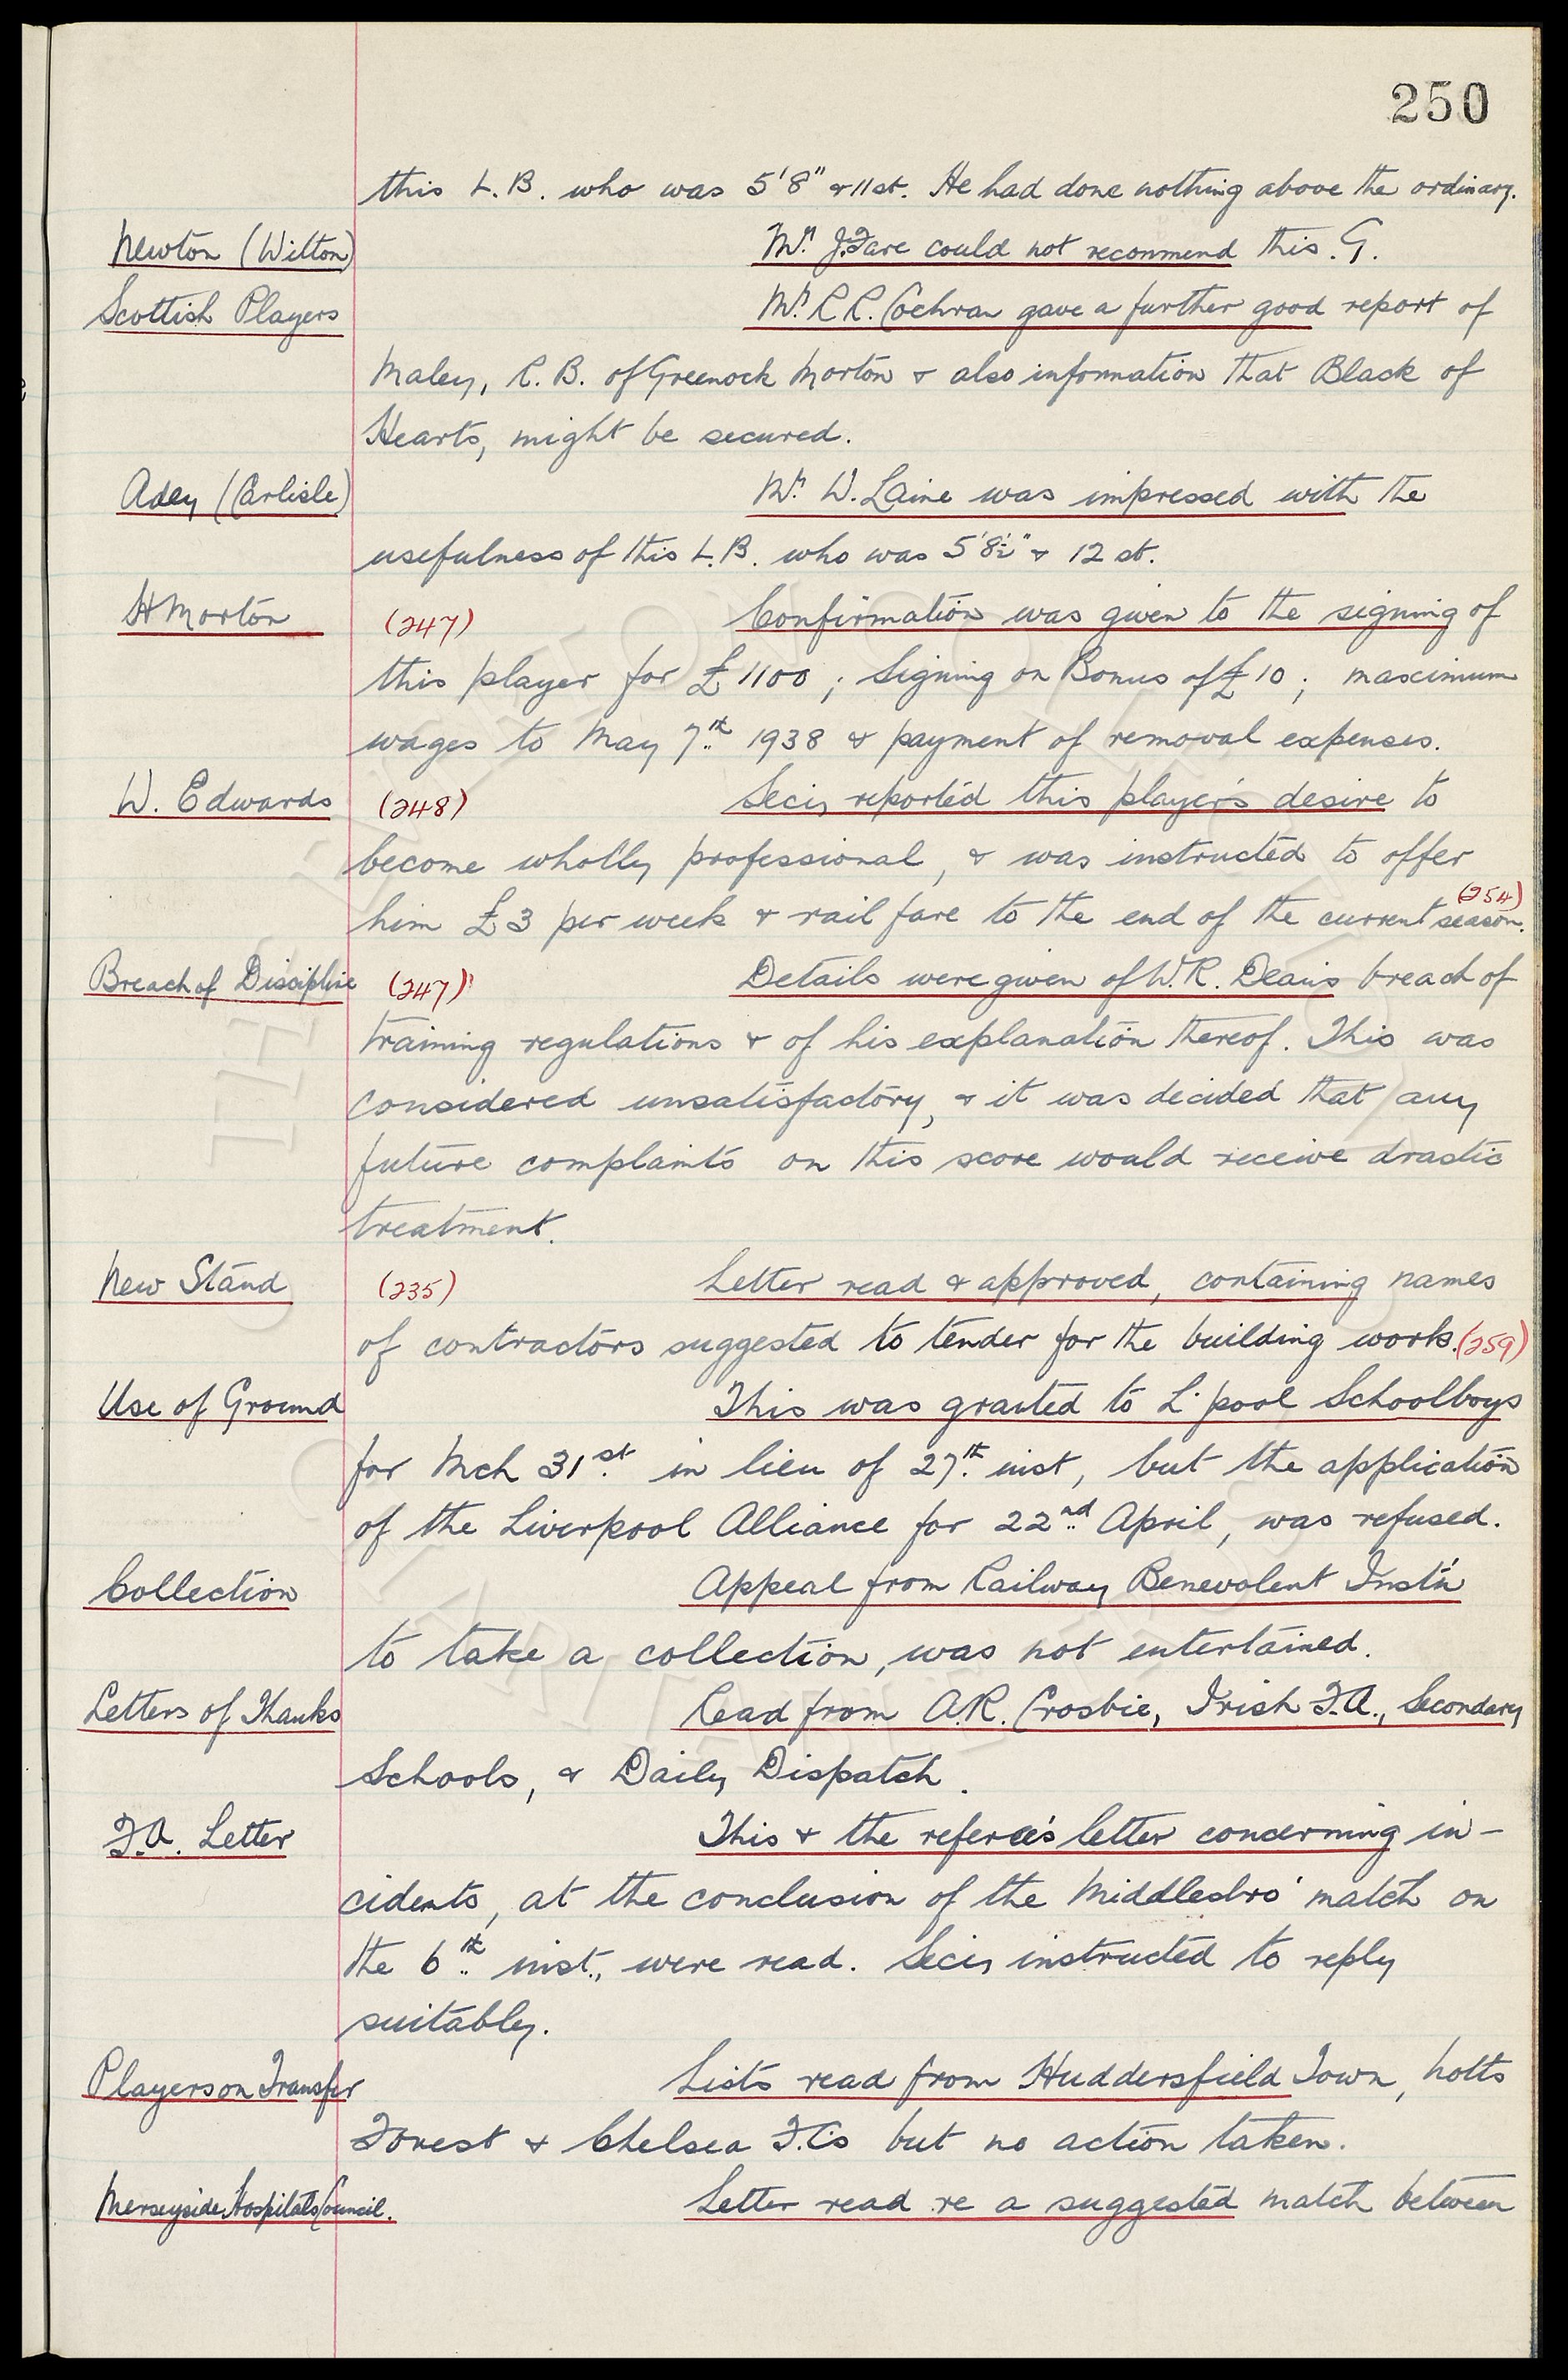 250
this L.B. who was 5'8" & 11st. He had done nothing above the ordinary.
Newton (Wilton) Mr. J. Fare could not recommend this G.
Scottish Players Mr. R.R. Cochran gave a further good report of
Maley, R.B. of Greenock Morton & also information that Black of
Hearts, might be secured.
Adey (Carlisle) Mr. W. Laine was impressed with the
usefulness of this L.B. who was 5'8½" & 12 st.
H Morton (247) Confirmation was given to the signing of
this player for £1100; Signing on Bonus of £10; maximum
wages to May 7th 1938 & payment of removal expenses.
W. Edwards (248) Secy reported this player's desire to
become wholly professional, & was instructed to offer
him £3 per week & rail fare to the end of the current season. (254)
Breach of Discipline (247) Details were given of W.R. Dean's breach of
training regulations & of his explanation thereof. This was
considered unsatisfactory, & it was decided that any
future complaints on this score would receive drastic
treatment.
New Stand (235) Letter read & approved, containing names
of contractors suggested to tender for the building work. (259)
Use of Ground This was granted to L'pool Schoolboys
for Mch 31st in lieu of 27th inst, but the application
of the Liverpool Alliance for 22nd April, was refused.
Collection Appeal from Railway Benevolent Inst'n
to take a collection, was not entertained.
Letters of Thanks Read from A.R. Crosbie, Irish F.A., Secondary
Schools, & Daily Dispatch.
F.A. Letter This & the referee's letter concerning in-
cidents, at the conclusion of the Middlesbro' match on
the 6th inst., were read. Secy instructed to reply
suitably.
Players on Transfer Lists read from Huddersfield Town, Notts
Forest & Chelsea F.Cs but no action taken.
Merseyside Hospitals Council. Letter read re a suggested match between